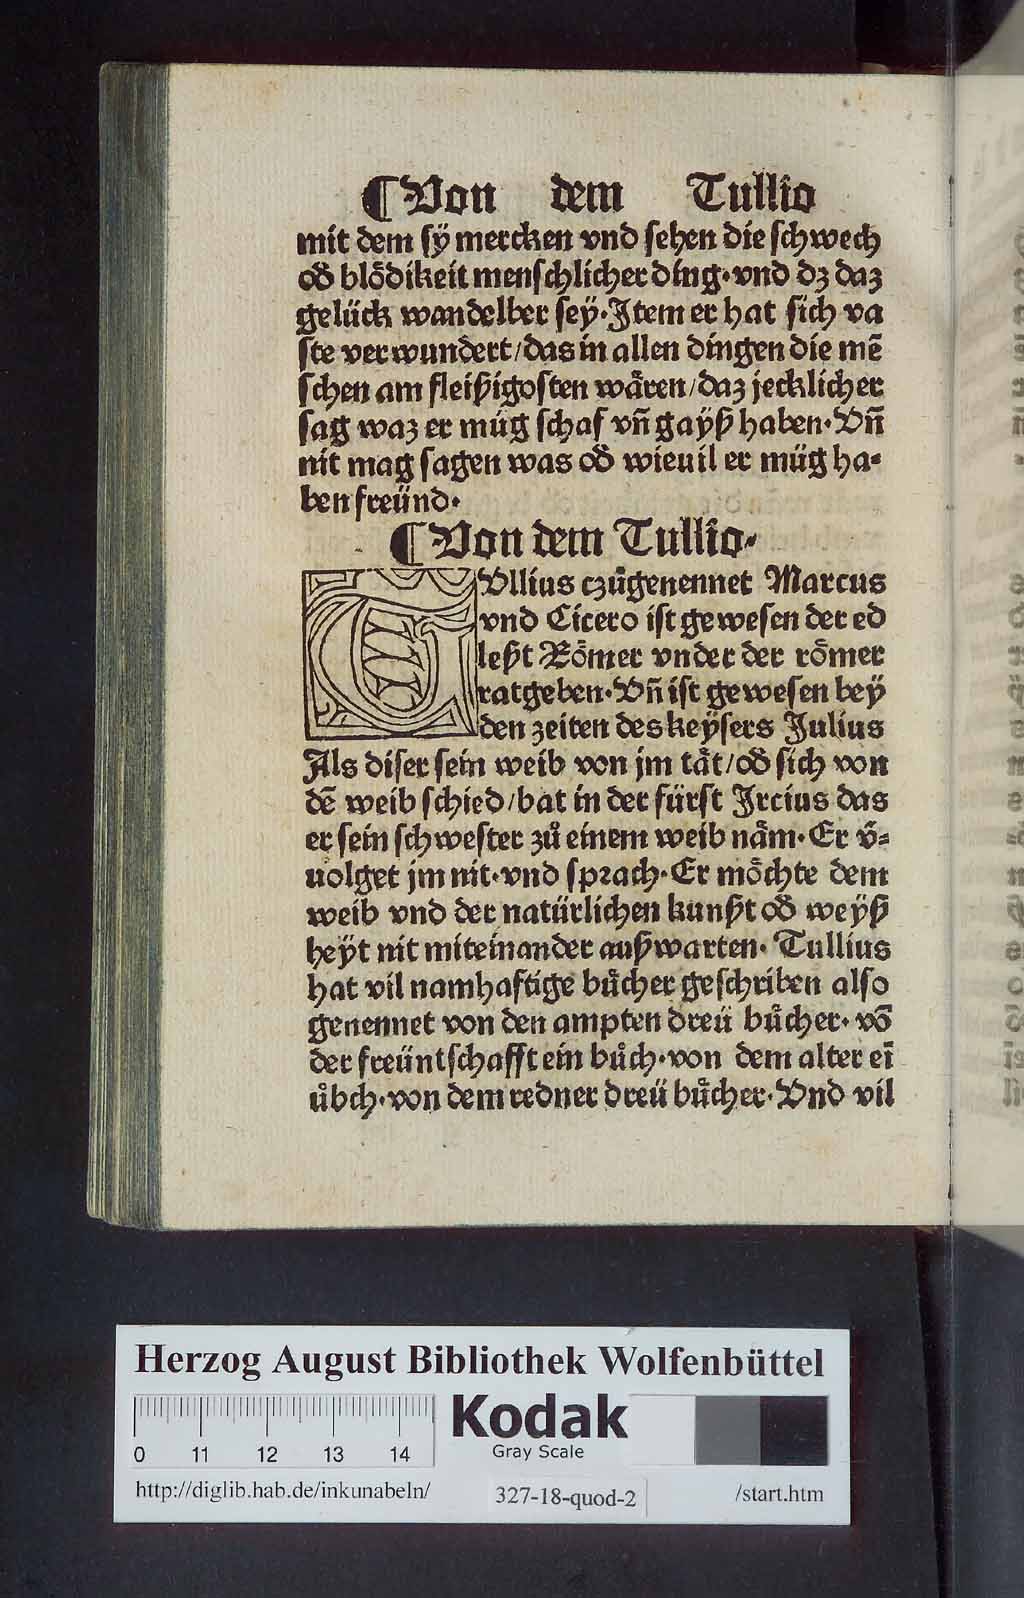 ¶ Von dem Tullio
mit dem sÿ mercken vnd sehen die schwech
od̕ blödikeit menschlicher ding · vnd dz daz
gelück wandelber seÿ · Item er hat sich va
ste verwundert / das in allen dingen die mē
schen am fleißigosten wären / daz jecklicher
sag waz er müg schaf vn̄ gaÿß haben · Vn̄
nit mag sagen was od̕ wieuil er müg ha⸗
ben freünd ·
¶ Von dem Tullio ·
TVllius czůgenennet Marcus
vnd Cicero ist gewesen der ed
leßt Römer vnder der römer
ratgeben · Vn̄ ist gewesen beÿ
den zeiten des keÿsers Julius
Als diser sein weib von jm tät / od̕ sich von
dē weib schied / bat in der fürst Ircius das
er sein schwester zů einem weib näm · Er v̄⸗
uolget jm nit · vnd sprach · Er möchte dem
weib vnd der natürlichen kunßt od̕ weÿß
heÿt nit miteinander außwarten · Tullius
hat vil namhaftige bůcher geschriben also
genennet von den ampten dreü bůcher · vō
der freüntschafft ein bůch · von dem alter eī
ůbch · von dem redner dreü bůcher · Vnd vil
Herzog August Bibliothek Wolfenbüttel
Kodak
Gray Scale
0 11 12 13 14
http://diglib.hab.de/inkunabeln/ 327-18-quod-2 /start.htm